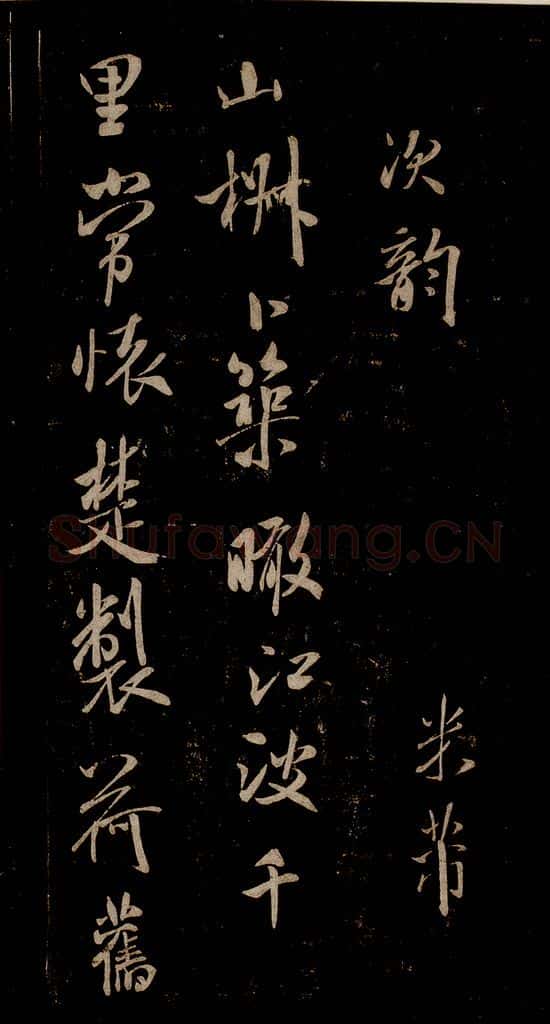 次韵 米芾
山栅卜築瞰江波千
里常懐楚製荷舊
Shufawang.CN